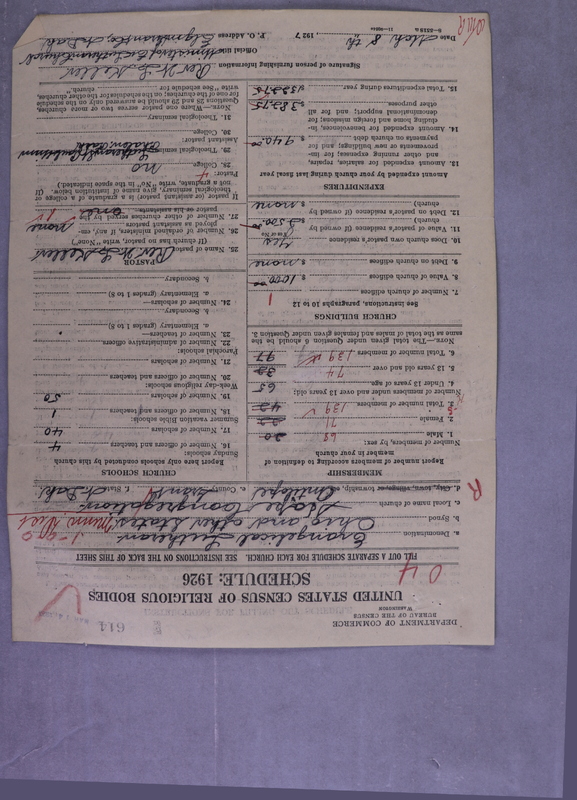 614
DEPARTMENT OF COMMERCE
BUREAU OF THE CENSUS
WASHINGTON
UNITED STATES CENSUS OF RELIGIOUS BODIES
SCHEDULE: 1926
04
FILL OUT A SEPARATE SCHEDULE FOR EACH CHURCH. SEE INSTRUCTIONS ON THE BACK OF THIS SHEET
a. Denomination Evangelical Lutheran 1-90
b. Synod Ohio and other States
c. Local name of church Hope Congregation
d. City, town, village, or township, Antilope e. County Grant f. State N. Dak.
R
MEMBERSHIP
Report number of members according to definition of member in your church
Number of members, by sex:
1. Male 20 68
2. Female 71
3. Total number of members 139
Number of members under and over 13 years old:
4. Under 13 years of age 65
5. 13 years old and over 74
6. Total number of members 97 139
NOTE.—The total given under Question 6 should be the same as the total of males and females given under Question 3.
CHURCH BUILDINGS
See instructions, paragraphs 10 to 12
7. Number of church edifices 1
8. Value of church edifices $ 1000.00
9. Debt on church edifices $ none
10. Does church own pastor's residence yes
(Yes or No)
11. Value of pastor's residence (if owned by church) $ 2500.00
12. Debt on pastor's residence (if owned by church) $ none
EXPENDITURES
Amount expended by your church during last fiscal year
13. Amount expended for salaries, repairs, and other running expenses; for improvements or new buildings; and for payments on church debt $ 940.00
14. Amount expended for benevolences, including home and foreign missions; for denominational support; and for all other purposes $ 383.75
15. Total expenditures during year $ 1323.75
CHURCH SCHOOLS
Report here only schools conducted by this church
Sunday schools:
16. Number of officers and teachers 4
17. Number of scholars 40
Summer vacation Bible schools:
18. Number of officers and teachers 1
19. Number of scholars 50
Week-day religious schools:
20. Number of officers and teachers
21. Number of scholars
Parochial schools:
22. Number of administrative officers
23. Number of teachers—
a. Elementary (grades 1 to 8)
b. Secondary
24. Number of scholars—
a. Elementary (grades 1 to 8)
b. Secondary
PASTOR
25. Name of pastor Rev. W. L. Kellers
(If church has no pastor, write "None")
26. Number of ordained ministers, if any, employed as assistant pastors none
27. Number of other churches served by the pastor or his assistants one
If pastor or assistant pastor is a graduate of a college or theological seminary, give name of institution below. (If not a graduate, write "No" in the space indicated.)
Pastor:
28. College no
29. Theological seminary
Assistant pastor:
30. College
31. Theological seminary
NOTE.—Where one pastor serves two or more churches, Questions 28 and 29 should be answered only on the schedule for one of the churches; on the schedules for the other churches, write "See schedule for church."
Signature of person furnishing information Rev. W. L. Kellers
Official title Minister of Ev. Lutheran Church
Date Feb. 8 th, 1927 P. O. Address Elgin, N. Dak.